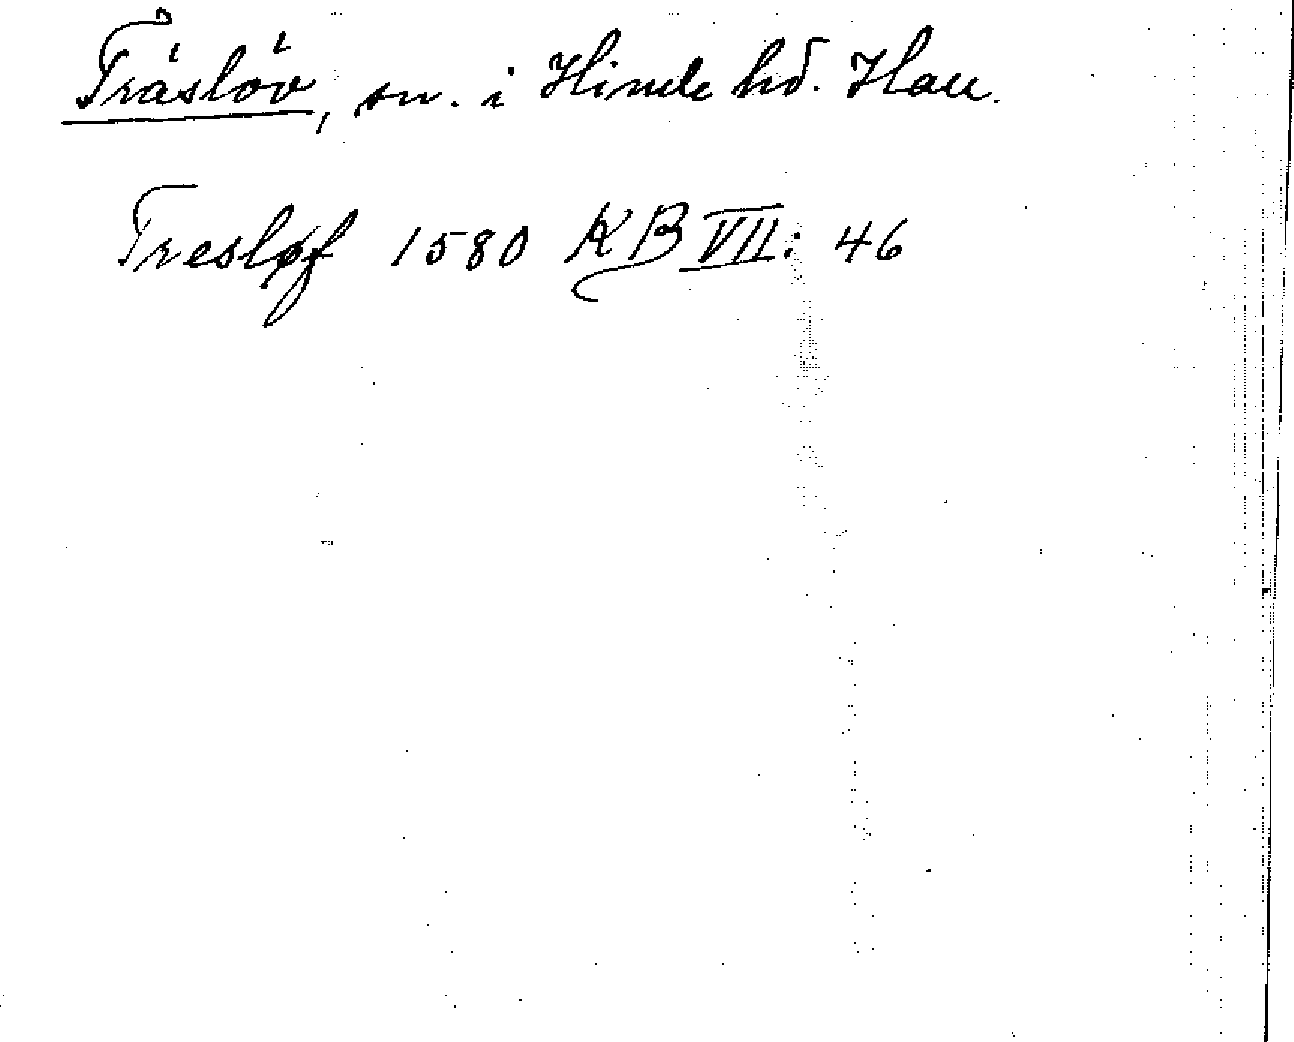 Träslöv, sn. i Himle hd. Hall.
Tresløf 1580 KB VII: 46